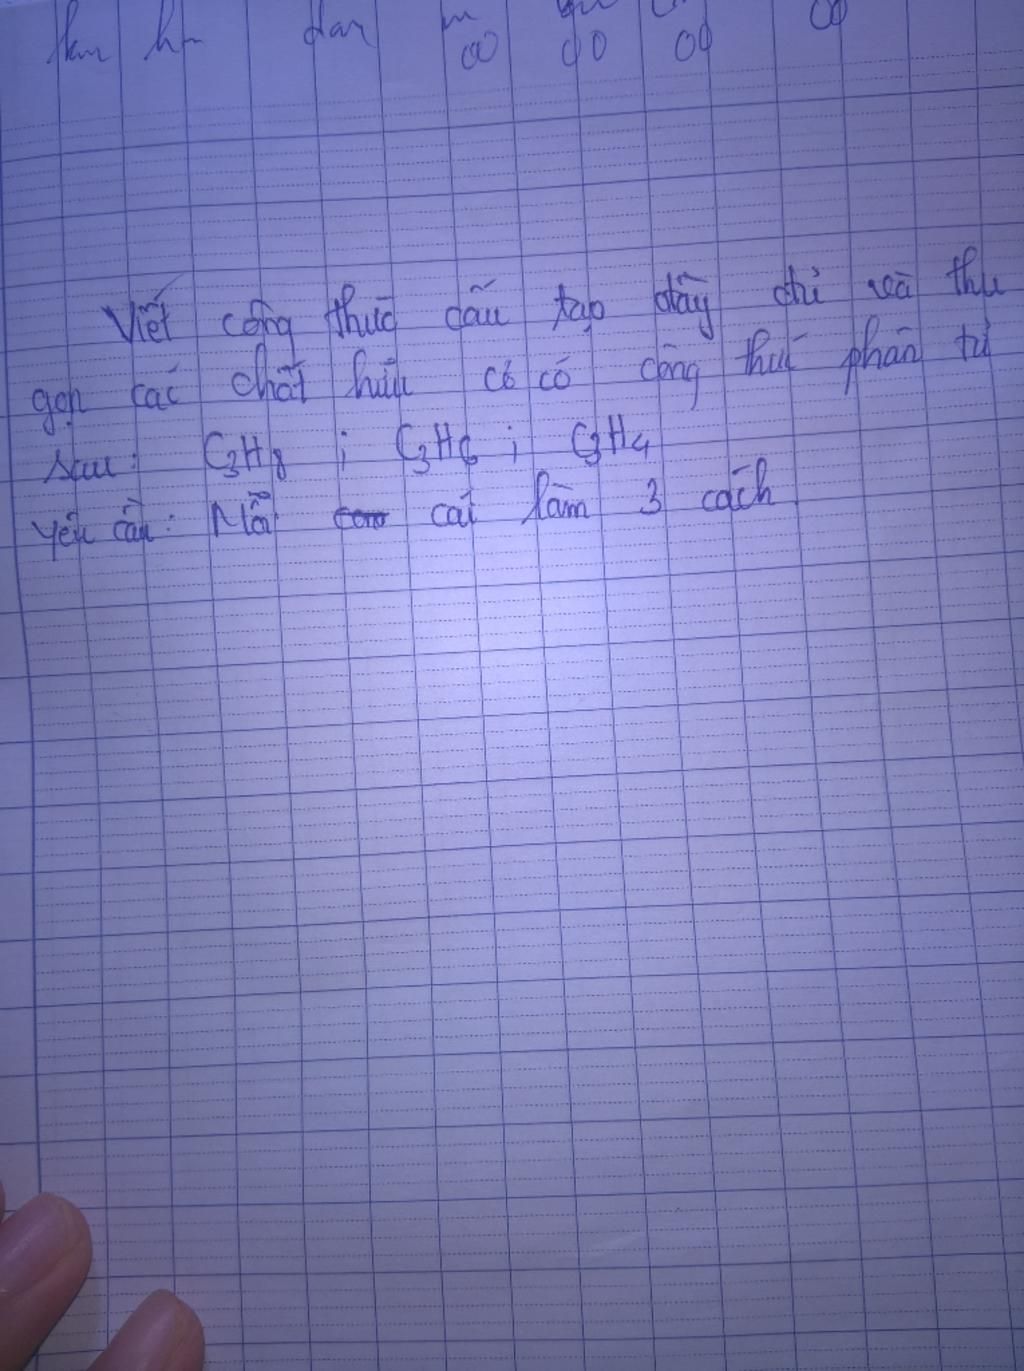 00 00 00 00
Viết công thức cấu tạo đầy đủ và thu
gọn các chất hữu cơ có công thức phân tử
sau: C3H8 ; C3H6 ; C3H4
Yêu cầu: Mỗi cái làm 3 cách